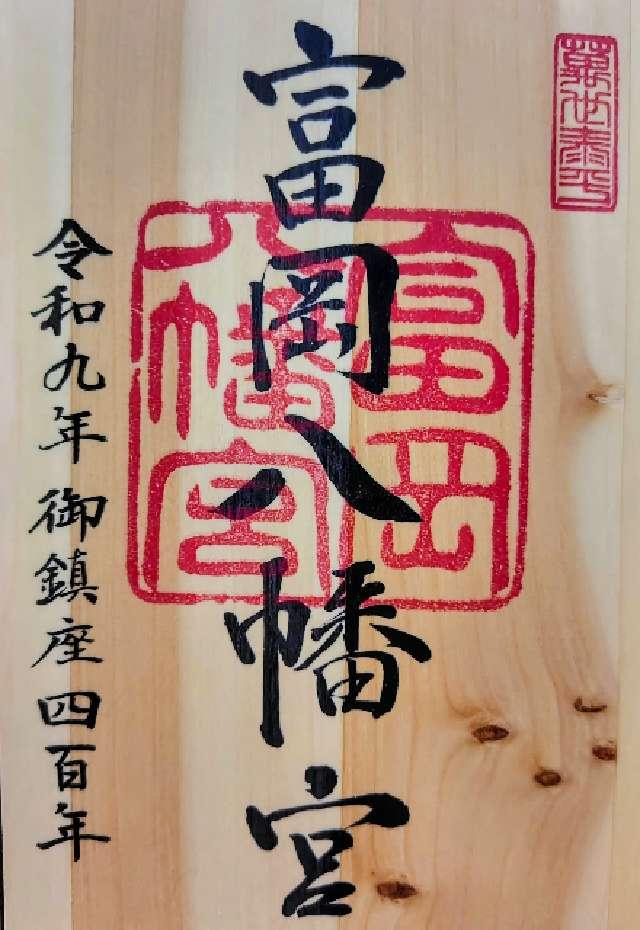 萬世泰平
富岡八幡宮
富岡八幡宮
令和九年御鎮座四百年